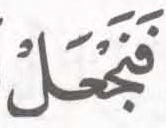 فَنَجْعَلْ